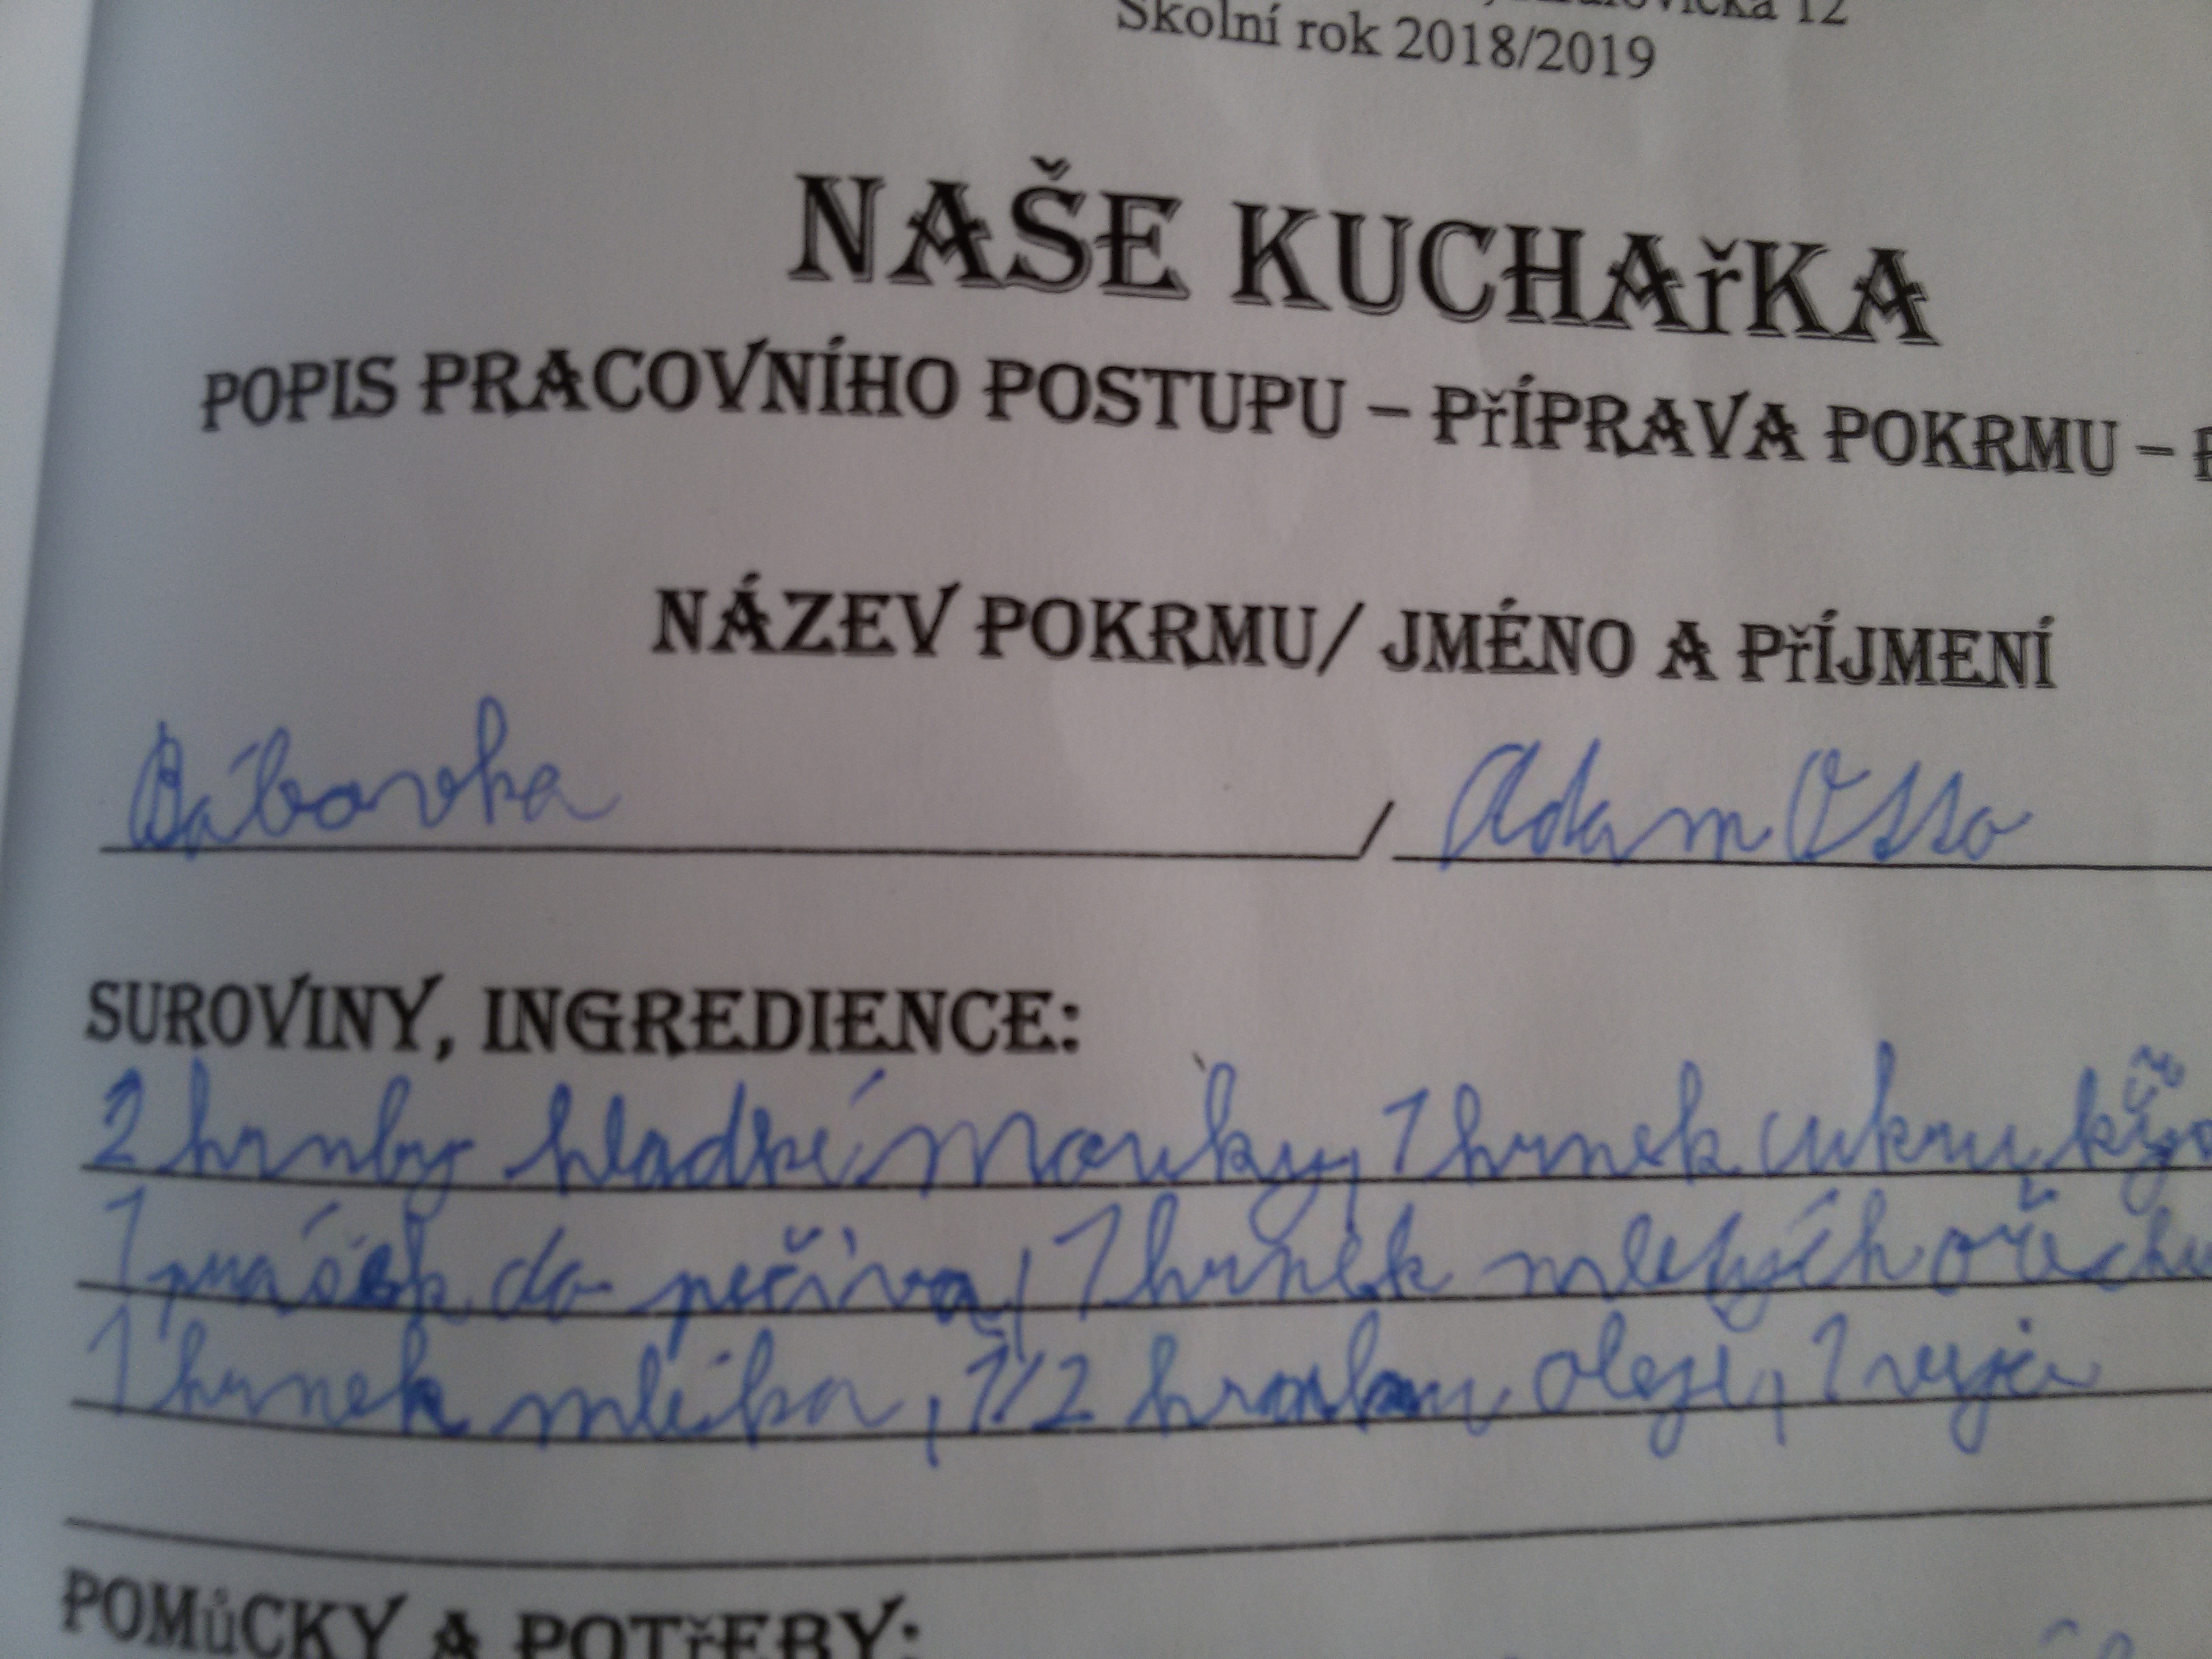 12
Školní rok 2018/2019
NAŠE KUCHAŘKA
POPIS PRACOVNÍHO POSTUPU – PŘÍPRAVA POKRMU –
NÁZEV POKRMU/ JMÉNO A PŘÍJMENÍ
Bábovka / Adam Osso
SUROVINY, INGREDIENCE:
2 hrnky hladké mouky, 1 hrnek cukru
1 prášek do pečiva, 1 hrnek mletých ořechů
1 hrnek mléka, 1/2 hrnku oleje, 1 vejce
POMŮCKY A POTŘEBY: